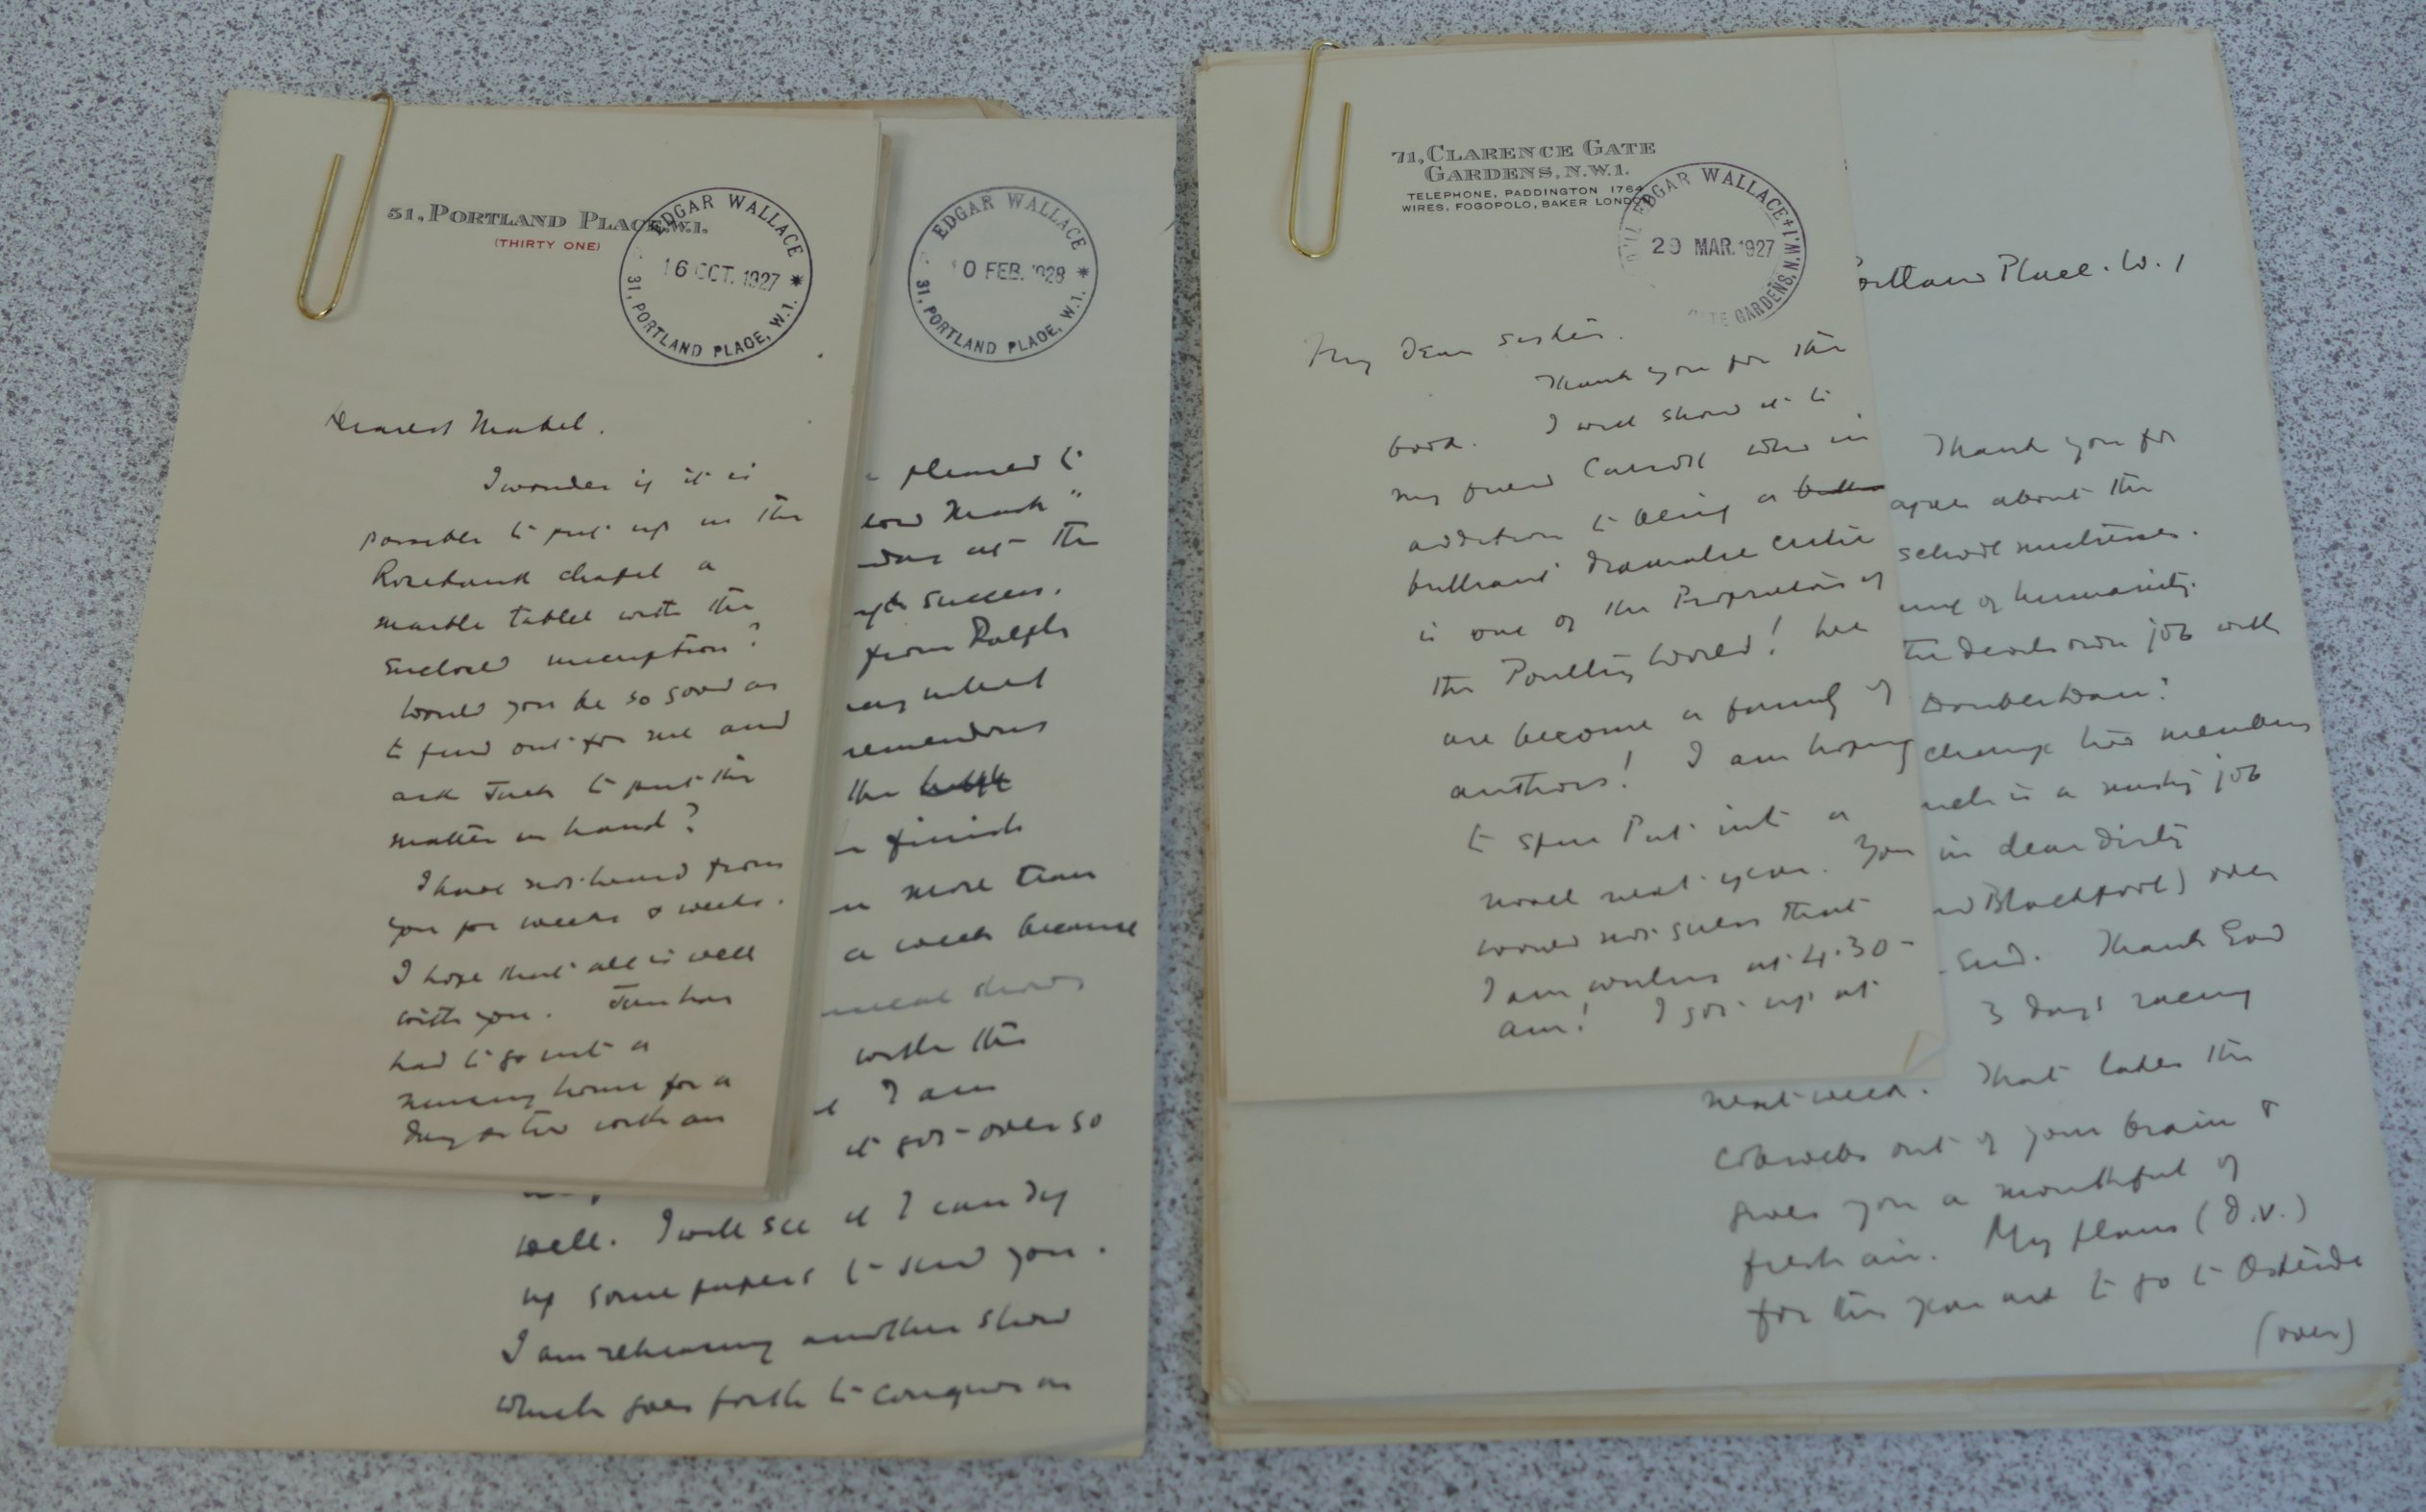 51, PORTLAND PLACE, W.1.
(THIRTY ONE)
EDGAR WALLACE
16 OCT. 1927
31, PORTLAND PLACE, W.1.
Dearest Mabel.
I wonder if it is
possible to put up in the
Rosebank chapel a
marble tablet with the
enclosed inscription?
Would you be so good as
to find out for me and
ask Jack to put the
matter in hand?
I have not heard from
you for weeks & weeks.
I hope that all is well
with you. Jim has
had to go into a
nursing home for a
day or two with an
EDGAR WALLACE
0 FEB. 1928
31, PORTLAND PLACE, W.1.
pleased to
Mark"
at the
success.
from Ralph
what
the
finish
more than
a week because
shows
with the
I am
it got over so
well. I will see if I can dig
up some papers to send you.
I am rehearsing another show
which goes forth to conquer on
71, CLARENCE GATE
GARDENS, N.W.1.
TELEPHONE, PADDINGTON 1764
WIRES, FOGOPOLO, BAKER LONDON
EDGAR WALLACE
29 MAR. 1927
GATE GARDENS, N.W.1
My dear sister.
Thank you for the
book. I will show it to
my friend Carroll who in
addition to being a
brilliant dramatic critic
is one of the Proprietors of
the Poultry World! We
are become a family of
authors! I am hoping
to spur Pat into a
novel next year. You
would not guess that
I am writing at 4.30
am! I got up at
Portland Place. W.1
Thank you for
agree about the
school mistresses.
of humanity.
the devils own job with
change two members
is a nasty job
in dear dirty
Blackpool) over
End. Thank God
3 days racing
next week. That takes the
cobwebs out of your brain &
gives you a mouthful of
fresh air. My plans (D.V.)
for this year are to go to Ostende
(over)